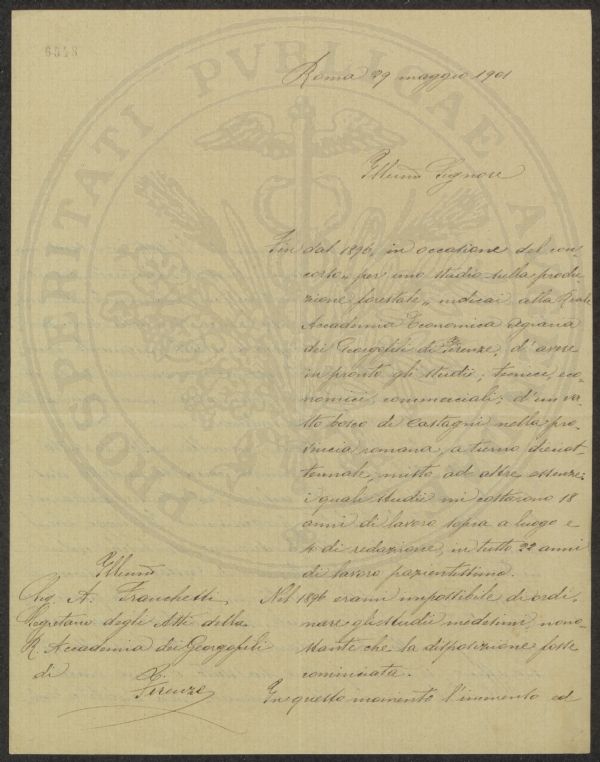 6548
PROSPERITATI PVBLICAE A
Roma 29 maggio 1901
Illmo Signore
Fin dal 1896, in occasione del con-
corso "per uno studio sulla produ-
zione forestale" indicai alla Reale
Accademia Economica Agraria
dei Georgofili di Firenze, d'avere
in pronto gli studii; tecnici, eco-
nomici, commerciali; d'un va-
sto bosco di castagni nella pro-
vincia romana, a turno diciot-
tennale, misto ad altre essenze;
i quali studii mi costarono 18
anni di lavoro sopra a luogo e
4 di redazione, in tutto 22 anni
di lavoro pazientissimo.
Nel 1896 erami impossibile di ordi-
nare gli studii medesimi, nono-
stante che la disposizione fosse
cominciata.
In questo momento l'immenso ed
Illmo
Sig. A. Franchetti
Segretario degli Atti della
R. Accademia dei Georgofili
di
Firenze